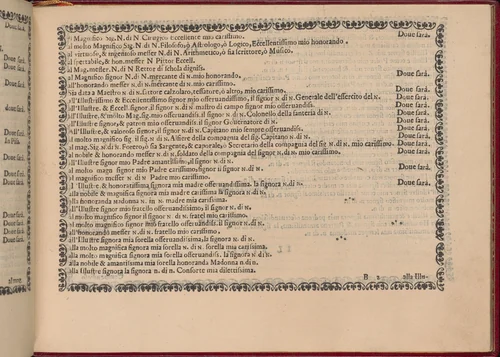 Al Magnifico Sig. N. di N Cirugico eccellente mio carissimo. Doue sarà.
al molto Magnifico Sig N. di N. Filosofo, ò Astrologo, ò Logico, Eccellentissimo mio honorando.
al virtuoso, & ingenioso messer N. di N. Aritthmetico, ò sia scrittore, ò Musico. Doue sarà.
al spettabile, & hon. messer N Pittor Eccell. Doue sarà.
al Mag. messer. N. di N Rettor di schola digniss.
al Magnifico signor N di N. mercante di N. mio honorando. Doue sarà.
all'honorando messer N. di N. mercante di N. mio carissimo.
Sia data a Maestro N. di N. sartore calzolaro, tessitore, o altro, mio carissimo. Doue sarà.
all'Illustrissimo & Eccellentissimo signor mio osseruandissimo, il signor N. di N. Generale dell'essercito del N.
all'Illustre. & Eccell. signor. il signor N. di N. mastro di campo signor mio osseruandiss.
all'Illustre. & molto Mag. sig. mio osseruandiss. il signor N. di N. Colonello della fanteria di N.
all'Illustre signor, & patron mio osseruandiss. il signor N. di N. Gouernatore di N.
all'Illustre, & valoroso signor, il signor N. di N. Capitano mio sempre osseruandiss. Doue sarà.
al molto magnifico sig. il sig. N. di N. Alfiere della compagnia del sig. Capitano N. di N. Doue sarà.
al mag. Sig. N. di N. Foriero, ò sia Sargente, & caporale, ò Secretario della compagnia del sig N. di N. mio carissimo. Doue sarà.
al nobile & honorando messer N. di N. soldato della compagnia del signor N. di N. mio carissimo. Doue sarà.
all'Illustre signor mio Padre amantissimo, il signor N. di N.
al molto magn signor mio Padre carissimo, signor il signor N. di N. Doue sarà.
al magnifico messer N di N Padre mio carissimo.
all'Illustre, & honoratissima, signora mia madre osseruandissima. la signora N. di N. Doue sarà.
alla nobile & magnifica signora mia madre carissima la signora N. di N.
alla honoranda madonna N. di N. madre mia carissima.
all'Illustre signor mio fratello osseruandissimo, il signor N. di N.
al molto magnifico signor il signor N. di N. fratel mio carissimo.
al molto magnifico signor mio fratello osseruandiss. il signor N. di N.
all'honorando messer N. di N. fratello mio carissimo.
all'Illustre signora mia sorella osseruandissima, la signora N. di N.
alla molto magnifica signora mia sorella la signora N. di N. sorella mia carissima.
alla molto magnifica signora mia sorella osseruandiss. la signora N. di N.
alla nobile & amantissima mia sorella honoranda Madonna N. di N.
alla Illustre signora la signora N. di N. Consorte mia dilettissima.
B 2 alla Illu-